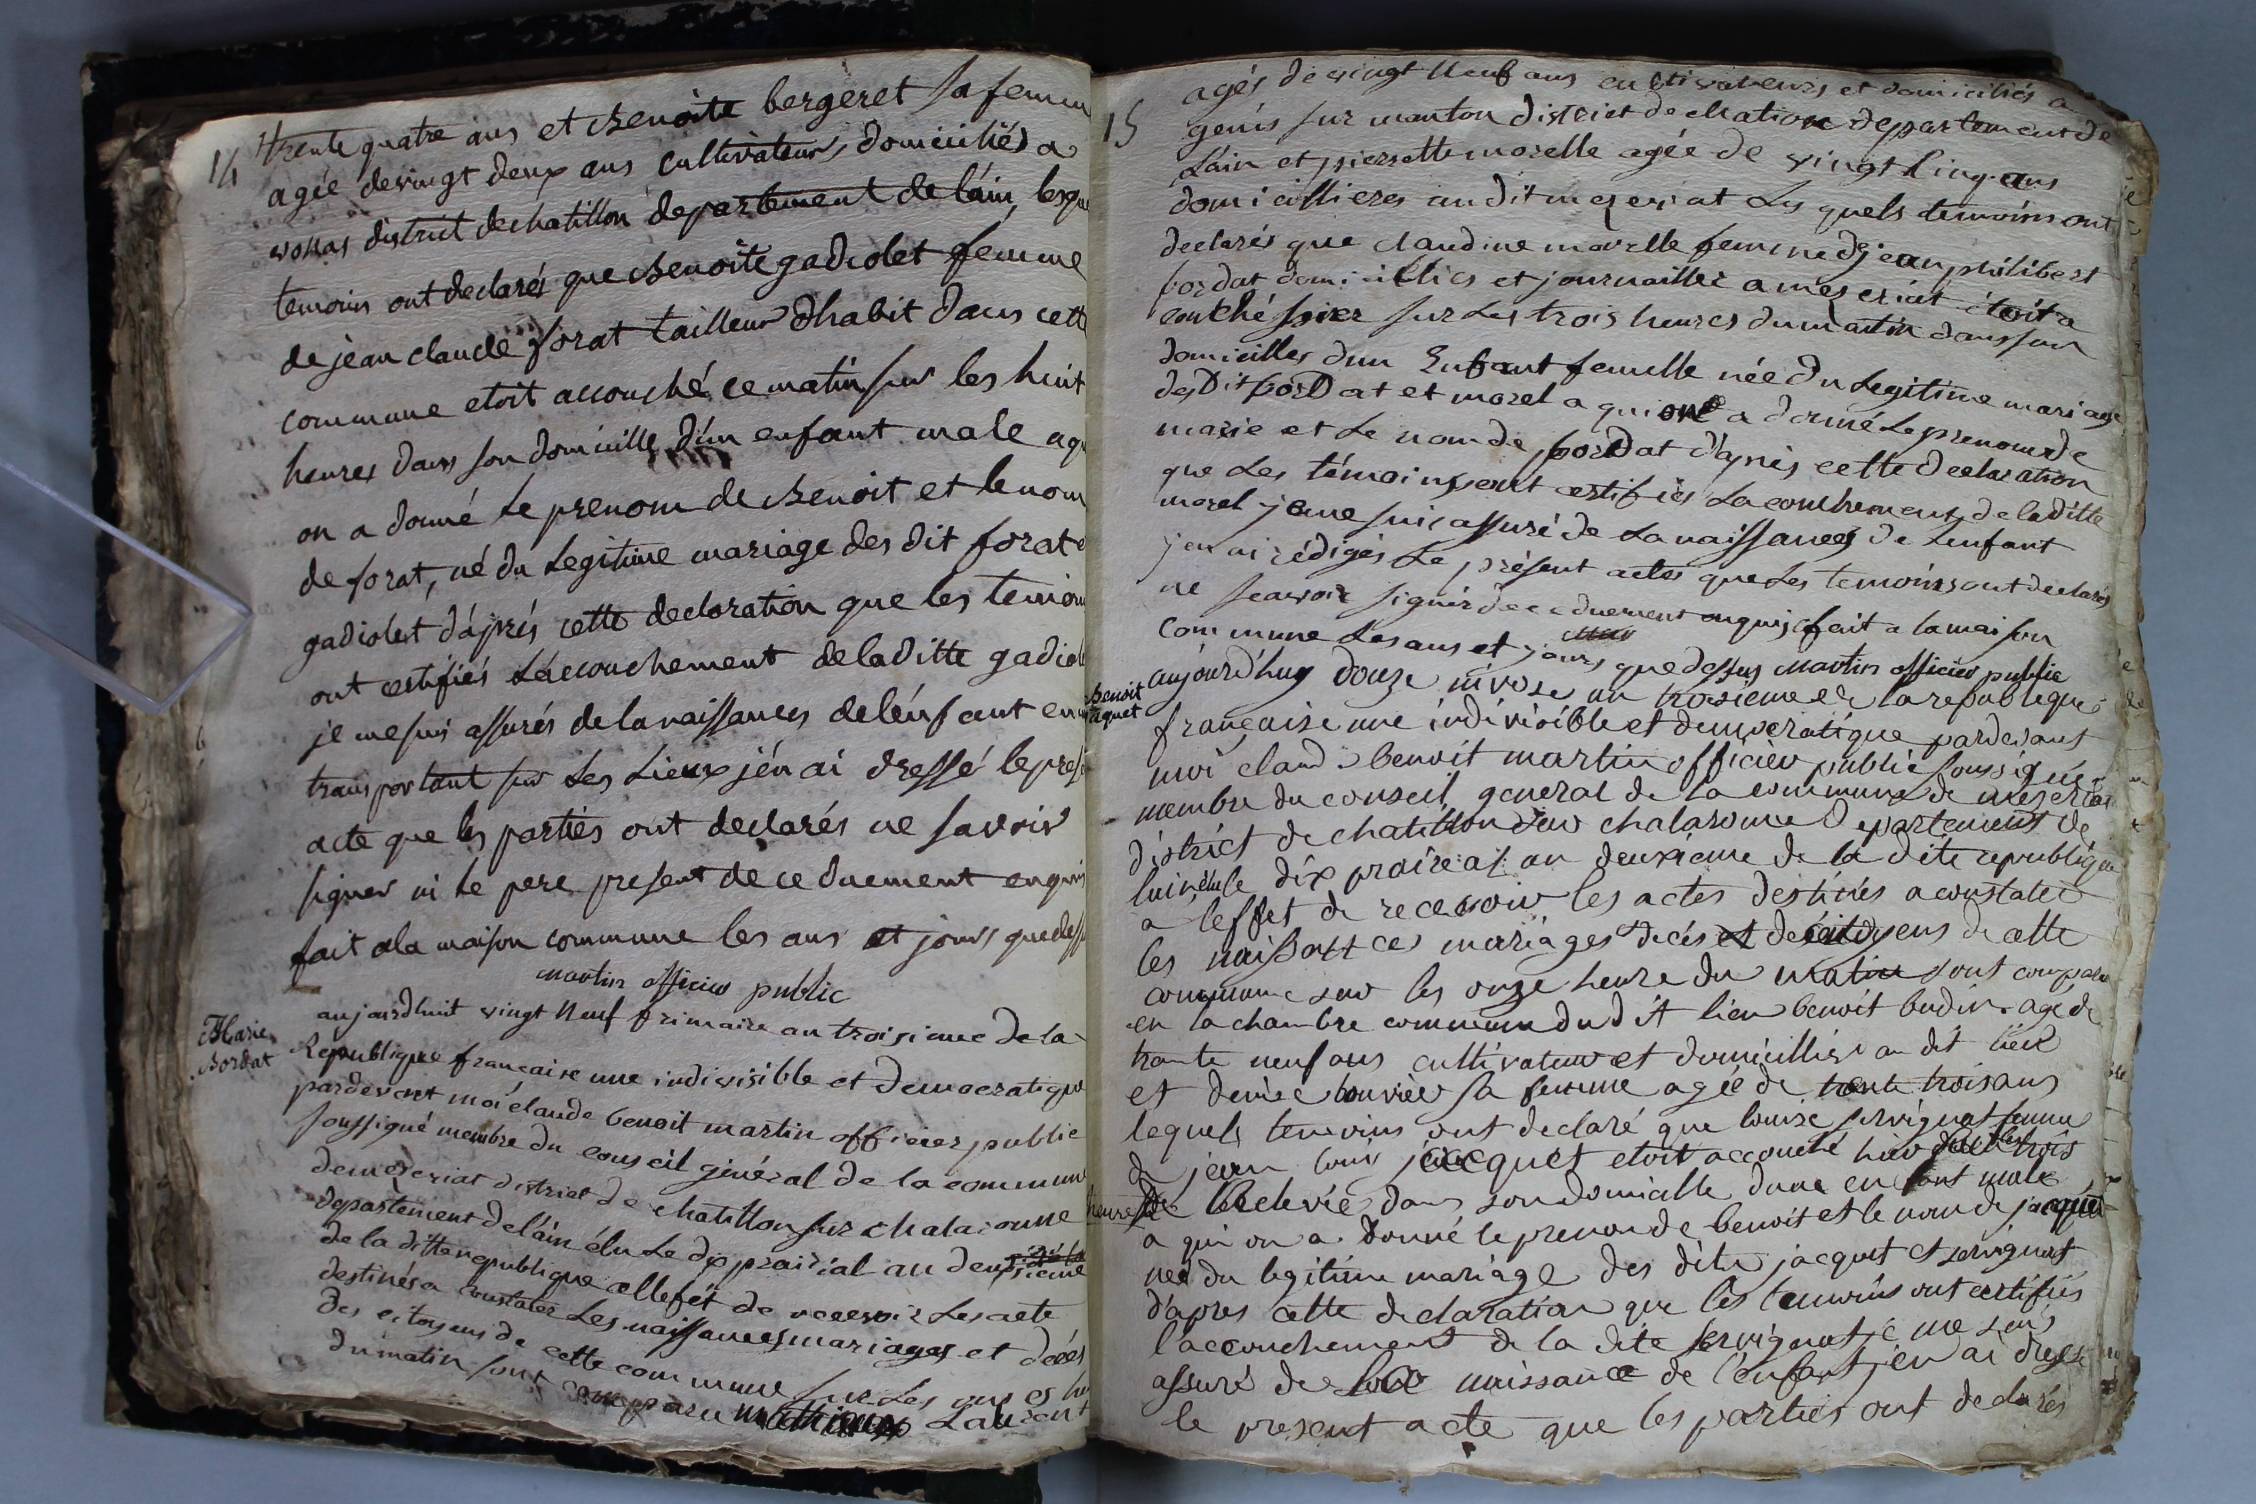 14
trente quatre ans et Benoite bergeret sa femme
agée de vingt deux ans cultivateurs, domiciliés a
vonnas district de chatillon departement de láin, lesque
temoins ont declarés que Benoite gadiolet femme
de jean claude forat tailleur dhabit dans cette
commune etoit accouché, ce matin sur les huit
heures dans son domicille, d'un enfant male a qu
on a donné le prenom de Benoit et le nom
de forat, né du Legitime mariage des dit forat e
gadiolet d'áprés cette declaration que les temoin
ont certifiés Láccouchement de la ditte gadiol
je me suis assurés de la naissances de lénfant en m
transportant sur Les Lieux jén ai dressé le prese
acte que les parties ont declarés ne savoir
signer ni le pere present de ce duement enquis
fait a la maison commune les ans et jours que dessu
martin officier public
Marie Bordat
aujourdhuit vingt Neuf frimaire an troisieme de la
Republique francaise une indivisible et democratique
pardevant moi claude benoit martin officier public
soussigné membre du conseil général de la commune
de mezeriat district de chatillon sur chalaronne
departement de láin élu Le dix prairial an deuxsieme
de la ditte republique a lleffét de recevoir Les acte
destinés a constater Les naissances mariages et décés
des citoyens de cette commune sur Les onz es heu
du matin sont comparu Laurent
15
agés de vingt Neuf ans cultivateurs et domiciliés a
genis sur manton district de chation departement de
Láin et pierrette morelle agée de vingt Cinq ans
domicillieres audit mezeriat Les quels temoins ont
declarés que claudine morelle femme de jean philibert
bordat domicilliés et journaillier a mezeriat étoit a
couché hier sur Les trois heures du matin dans son
domicilles dun Enfant femelle née du Legitime mariage
des Dit borDat et morel a qui one a donné Le prenom de
marie et Le nom de borDat d'aprés cette declaration
que Les témoins ont certifiés Lacouchement de la ditte
morel je me suis assuré de La naissances de Lenfant
jen ai rédigés Le présent actes que Les temoins ont declarés
ne scavoir signér de ce duement enquis fait a la maison
commune Les ans et jours que dessus Martin officier public
Benoit jaquet
aujourd'huy douze nivose an troisieme de la republique
française une indivisible et democratique pardevant
moi claude benoit martin officier public soussigné
membre du conseil general de la commune de mezeriat
district de chatillon sur chalaronne Departement de
lain élu le dix praireal an deuxieme de la dite republique
a leffet de recevoir les actes destinés a constater
les naissances mariages decés et de citoyens de cette
commune sur les onze heure du matin sont comparu
en la chambre commune dudit lieu benoit budin agé de
trante neuf ans cultivateur et domicillier au dit lieu
et denise bouvier sa femme agée de trente trois ans
lequels temoins ont declaré que louise servignat femme
de jean louis jacquet etoit accouché hier sur les trois
heures de Relevée dans son domicille dune enfant male
a qui on a donné le prenom de benoit et le nom de jacquet
né du legitime mariage des dits jacquet et servignat
d'apres cette declaration que les temoins ont certifiés
l'accouchement de la dite servignat je me suis
assuré de la naissance de l'enfant j'en ai dressé
le present acte que les parties ont declarés